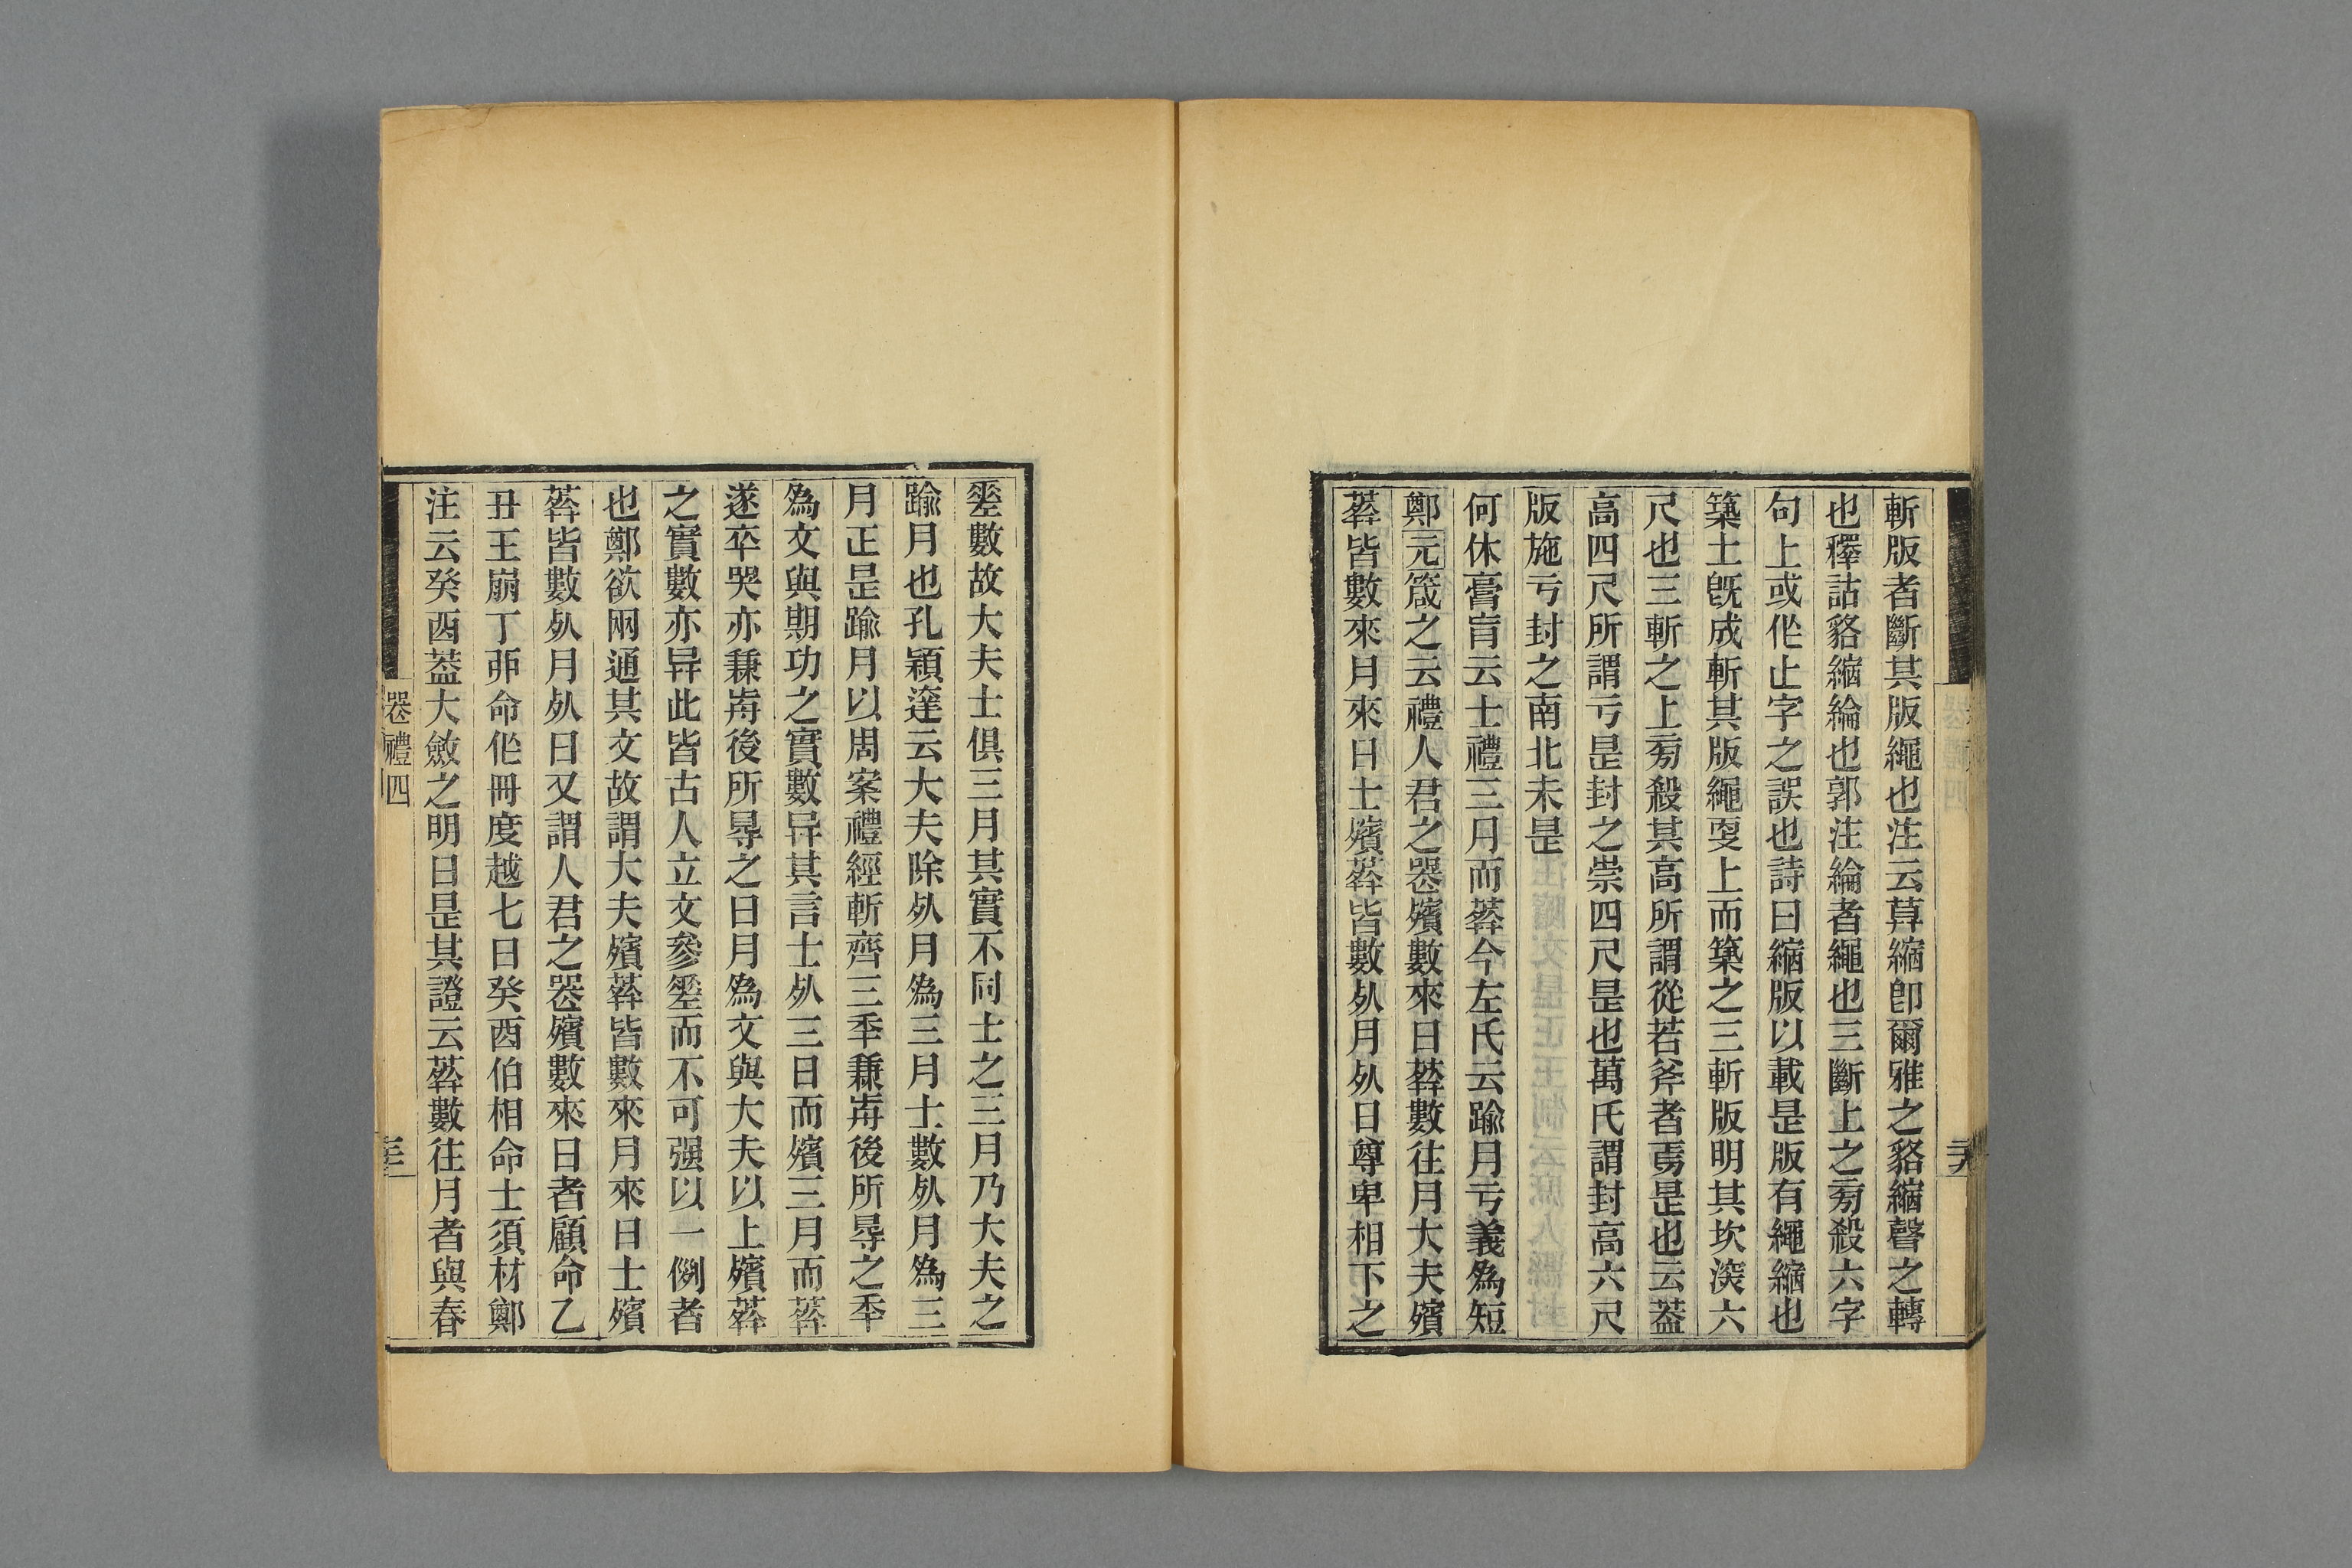 斬版者斷其版繩也注云葬縮卽爾雅之貉縮聲之轉
也釋詁貉縮綸也郭注綸者繩也三斷上之旁殺六字
句上或作止字之誤也詩曰縮版以載是版有繩縮也
築土旣成斬其版繩耎上而築之三斬版明其坎深六
尺也三斬之上旁殺其高所謂從若斧者焉是也云葢
高四尺所謂亏是封之崇四尺是也萬氏謂封高六尺
版施亏封之南北未是
何休膏肓云士禮三月而葬今左氏云踰月亏義爲短
鄭元箴之云禮人君之喪殯數來日葬數往月大夫殯
葬皆數來月來日士殯葬皆數𣦸月𣦸日尊卑相下之
𡍮數故大夫士俱三月其實不同士之三月乃大夫之
踰月也孔穎達云大夫除𣦸月爲三月士數𣦸月爲三
月正是踰月以周案禮經斬齊三年兼歬後所㝵之年
爲文與期功之實數异其言士𣦸三日而殯三月而葬
遂卒哭亦兼歬後所㝵之日月爲文與大夫以上殯葬
之實數亦异此皆古人立文參𡍮而不可强以一例者
也鄭欲兩通其文故謂大夫殯葬皆數來月來日士殯
葬皆數𣦸月𣦸日又謂人君之喪殯數來日者顧命乙
丑王崩丁丣命作冊度越七日癸酉伯相命士須材鄭
注云癸酉葢大斂之明日是其證云葬數往月者與春
喪禮四